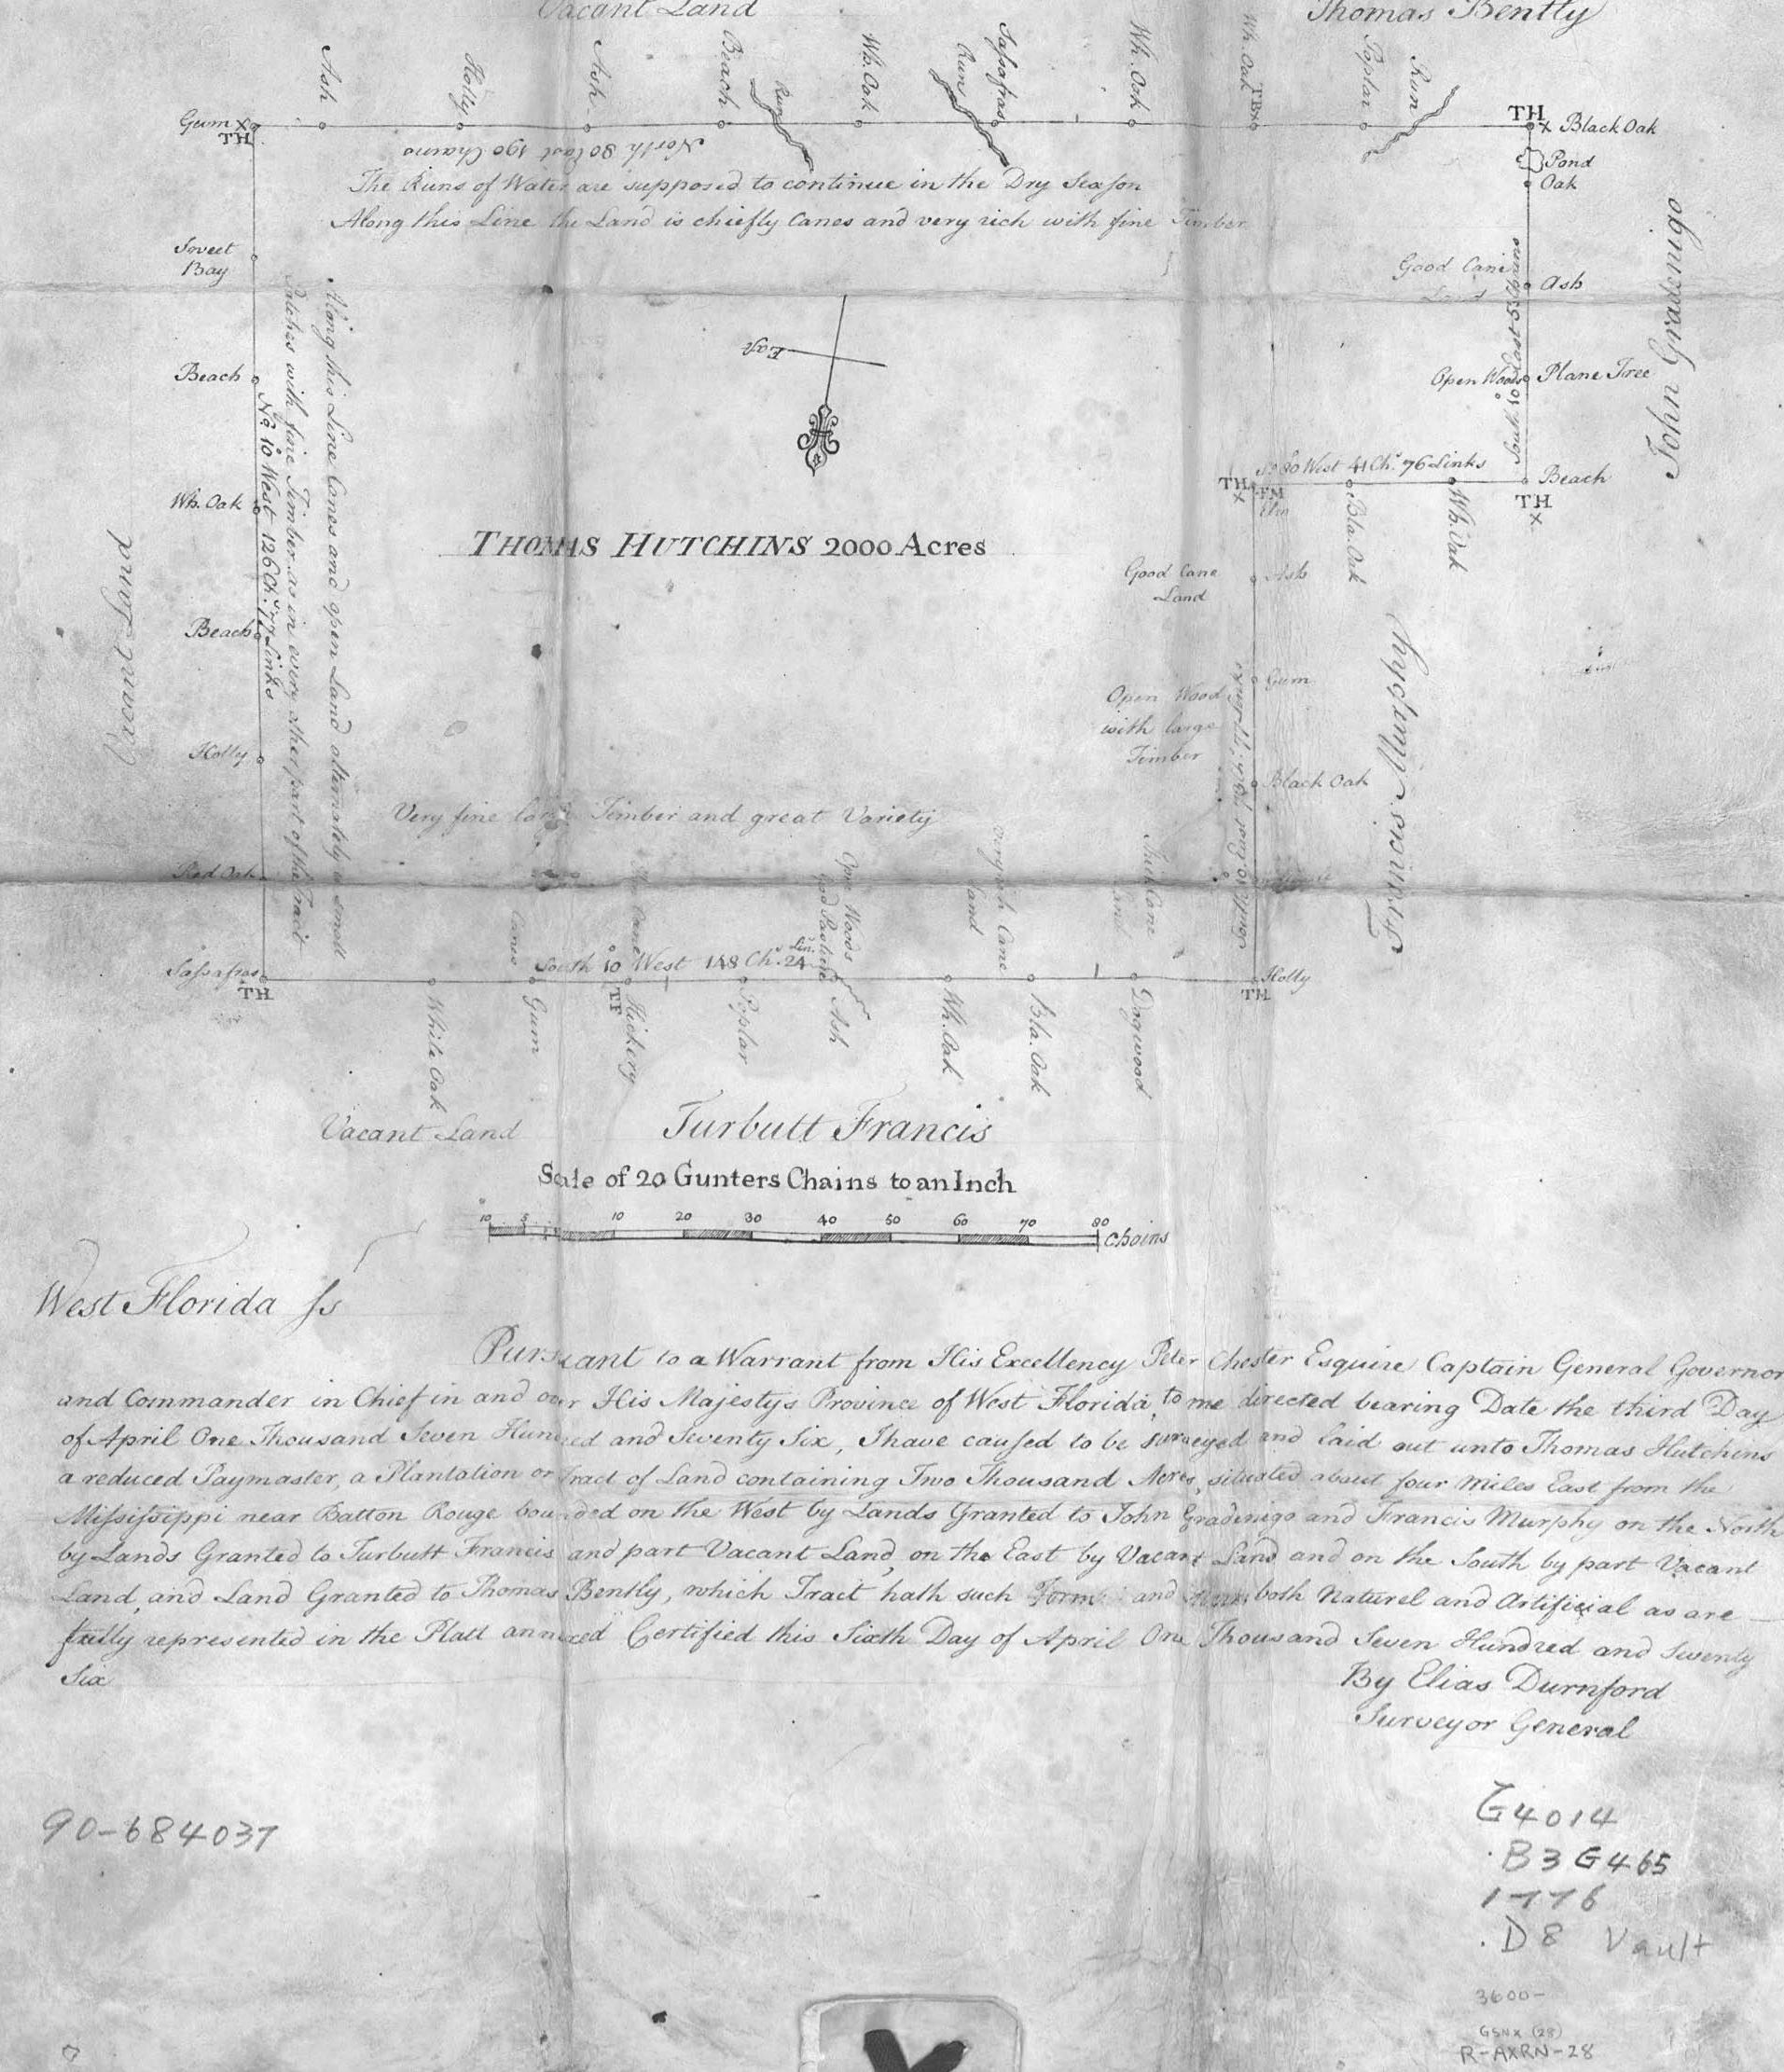 Vacant Land
Thomas Bently
Ash
Holly
Ash
Beach
Run
Wh. Oak
Run
Sassafras
Wh. Oak
Wh. Oak
Poplar
Run
Gum
TH
TH
Black Oak
North 80 East 190 Chains
The Runs of Water are supposed to continue in the Dry Season
Along this Line the Land is chiefly Canes and very rich with fine Timber
Pond
Oak
Sweet
Bay
Good Cane
Land
Ash
South 10 East 53 Chains
John Gradenigo
East
Beach
Open Woods
Plane Tree
Wh. Oak
No. 10 West 126 Ch.s 77 Links
Along this Line Canes and open Land alternately in small
Patches with fine Timber as in every other part of the Tract
So 80 West 41 Ch.s 76 Links
Beach
TH
TH
FM
Elm
Bla. Oak
Wh. Oak
THOMAS HUTCHINS 2000 Acres
Good Cane
Land
Ash
Vacant Land
Beach
Holly
Gum
Open Wood
with large
Timber
Black Oak
Francis Murphy
Very fine large Timber and great Variety
Red Oak
Canes
Open Woods
Good Pasture
Cane
Land
Thick Cane
Land
Sassafras
TH
South 10 West 148 Ch.s 24 Lin.s
Holly
TH
White Oak
Gum
TF
Hickery
Poplar
Ash
Wh. Oak
Bla. Oak
Dogwood
Vacant Land
Turbutt Francis
Scale of 20 Gunters Chains to an Inch
10 5 10 20 30 40 50 60 70 80
Chains
West Florida ſs
Pursuant to a Warrant from His Excellency Peter Chester Esquire Captain General Governor
and Commander in Chief in and over His Majestys Province of West Florida, to me directed bearing Date the third Day
of April One Thousand Seven Hundred and Seventy Six, I have caused to be surveyed and laid out unto Thomas Hutchins
a reduced Paymaster, a Plantation or Tract of Land containing Two Thousand Acres, situated about four Miles East from the
Mississippi near Batton Rouge bounded on the West by Lands Granted to John Gradenigo and Francis Murphy on the North
by Lands Granted to Turbutt Francis and part Vacant Land, on the East by Vacant Land and on the South by part Vacant
Land, and Land Granted to Thomas Bently, which Tract hath such Form and both Naturel and Artificial as are
fully represented in the Platt annexed Certified this Sixth Day of April One Thousand Seven Hundred and Seventy
Six
By Elias Durnford
Surveyor General
90-684037
G4014
.B3G465
1776
.D8 Vault
3600-
GSNX (28)
R-AXRN-28